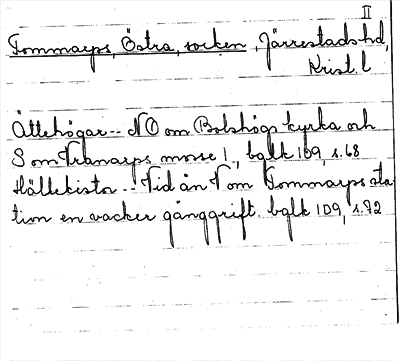 II
Tommarps, Östra, socken, Järrestads hd,
Krist. l
Ättehögar -- NO om Bolshögs kyrka och
S om Tranarps mosse!, bglk 109, s. 68
Hällekistor -- Vid ån V om Tommarps sta
tion en vacker gånggrift. bglk 109, s. 72